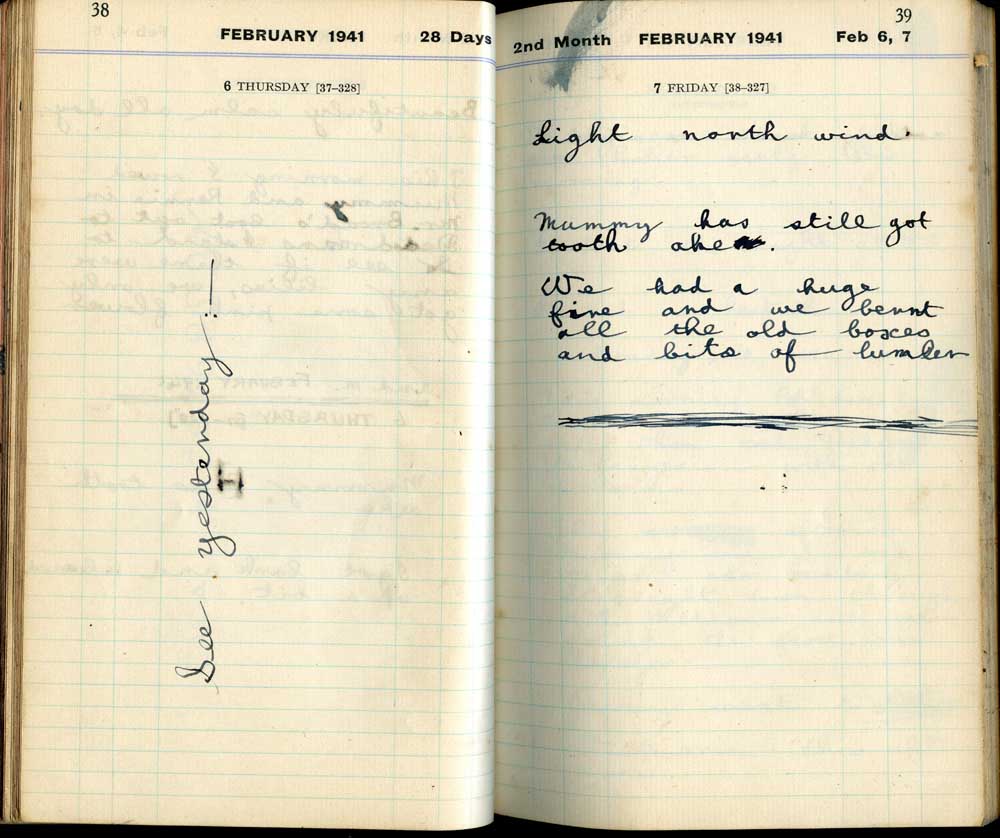 38
FEBRUARY 1941 28 Days
6 THURSDAY [37–328]
See yesterday :—
39
2nd Month FEBRUARY 1941 Feb 6, 7
7 FRIDAY [38–327]
Light north wind.
Mummy has still got
tooth ake.
We had a huge
fire and we bernt
all the old boxes
and bits of lumber